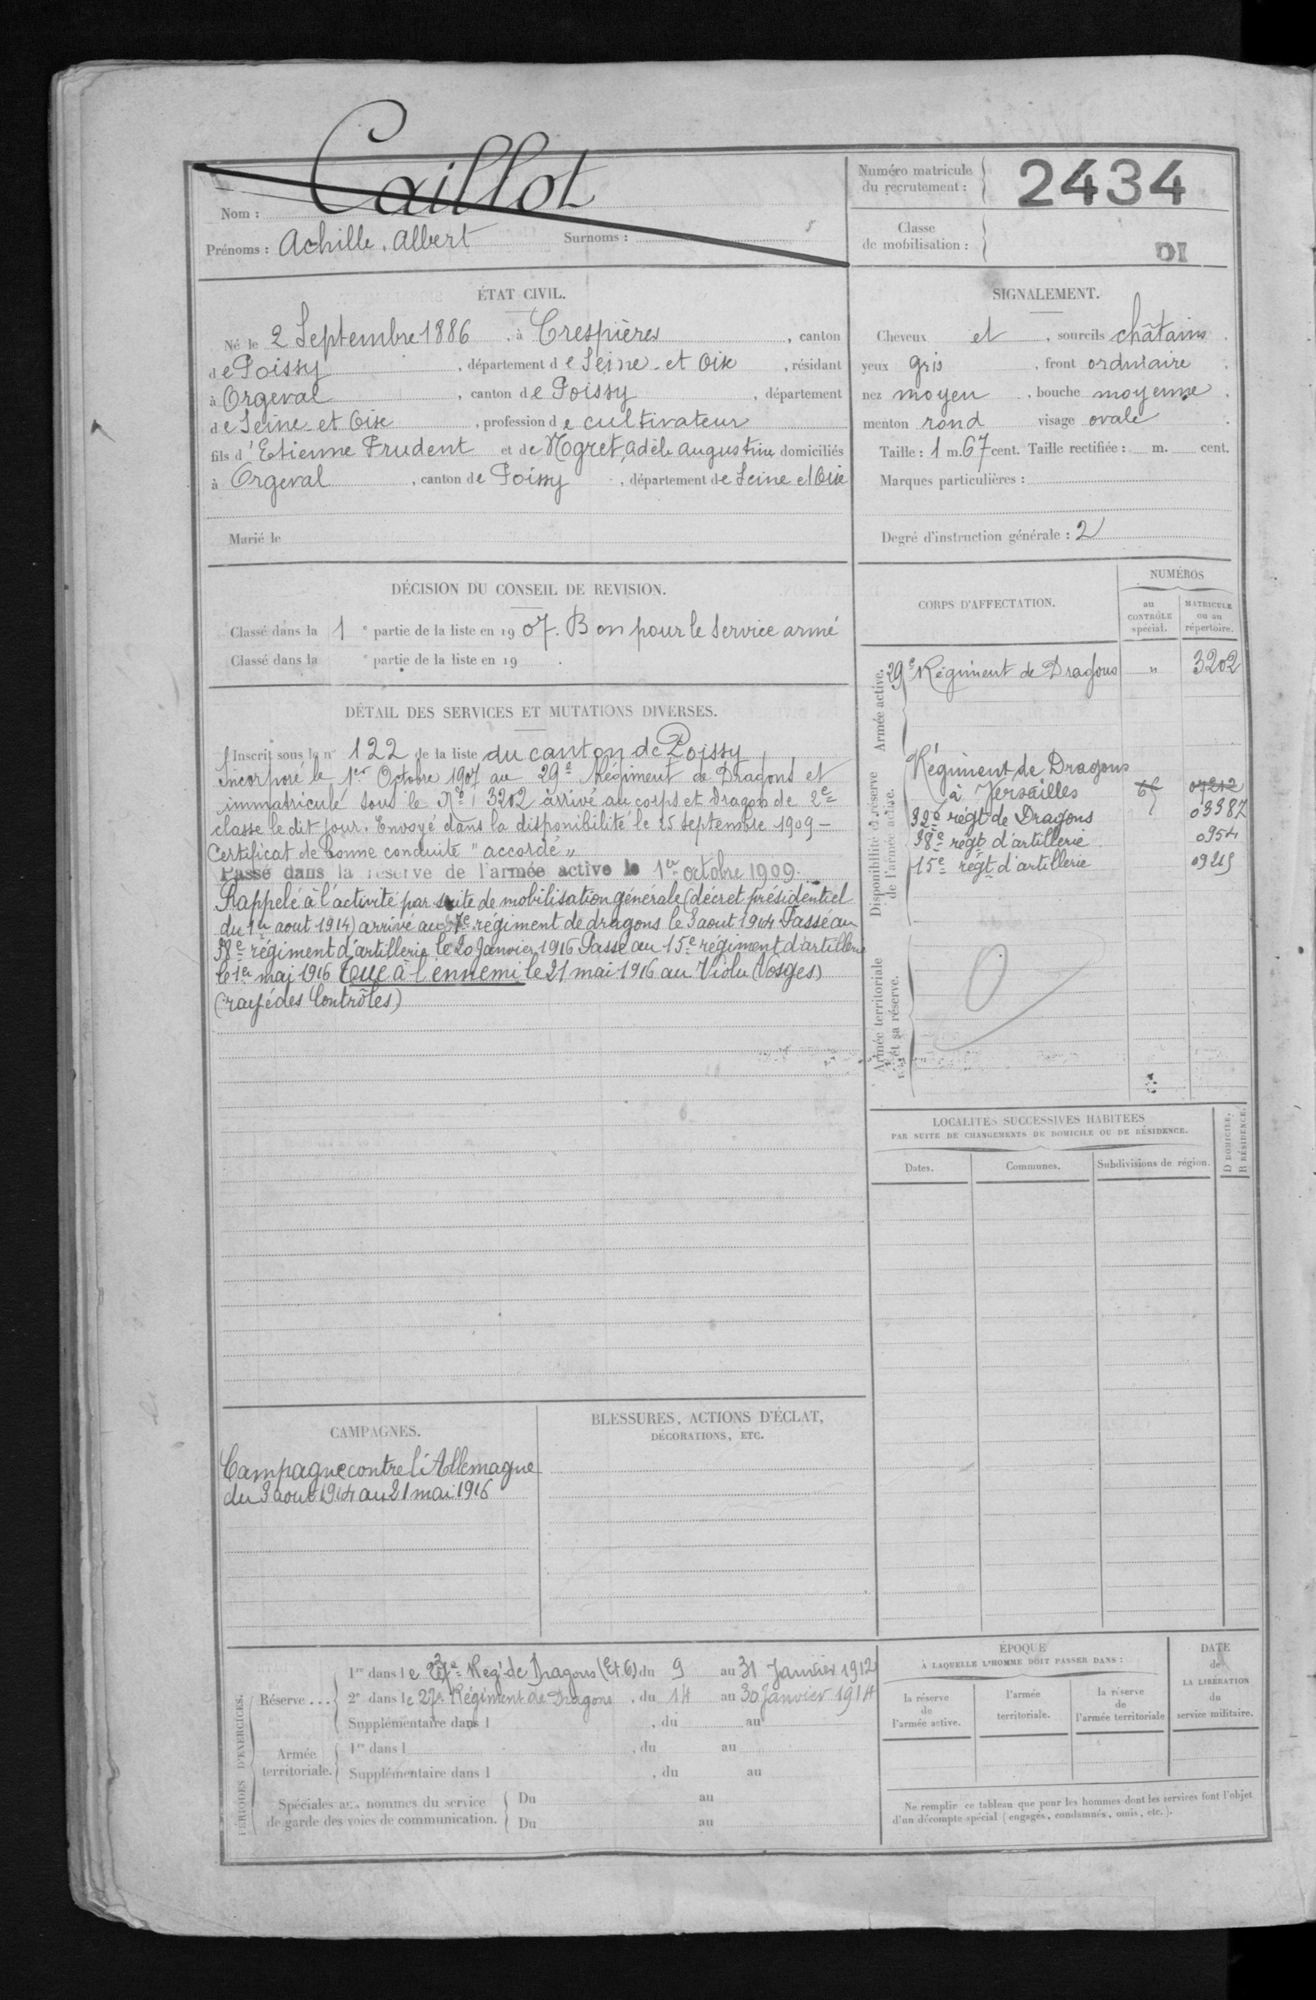 Caillot
Nom :
Prénoms : Achille. Albert Surnoms :
Numéro matricule du recrutement : 2434
Classe de mobilisation :
DI
ÉTAT CIVIL.
Né le 2 Septembre 1886, à Crespières, canton
de Poissy, département de Seine-et-Oise, résidant
à Orgeval, canton de Poissy, département
de Seine-et-Oise, profession de cultivateur
fils d'Etienne Prudent et de Nogret, adèle augustine domiciliés
à Orgeval, canton de Poissy, département de Seine et Oise
Marié le
SIGNALEMENT.
Cheveux et sourcils châtains
yeux gris, front ordinaire
nez moyen, bouche moyenne
menton rond visage ovale
Taille : 1 m. 67 cent. Taille rectifiée : m. cent.
Marques particulières :
Degré d'instruction générale : 2
DÉCISION DU CONSEIL DE REVISION.
Classé dans la 1e partie de la liste en 1907. Bon pour le service armé
Classé dans la e partie de la liste en 19 .
CORPS D'AFFECTATION.
NUMÉROS
au CONTRÔLE spécial.
MATRICULE ou au répertoire.
Armée active.
29e Régiment de Dragons " 3202
Disponibilité et réserve de l'armée active.
Régiment de Dragons
à Versailles
32e régt de Dragons 03387
38e régt d'artillerie 0954
15e régt d'artillerie
Armée territoriale et sa réserve.
DÉTAIL DES SERVICES ET MUTATIONS DIVERSES.
Inscrit sous le n° 122 de la liste du canton de Poissy
Incorporé le 1er Octobre 1907 au 29e Régiment de Dragons et
immatriculé sous le No 3202 arrivé au corps et dragon de 2e
classe le dit jour. Envoyé dans la disponibilité le 25 septembre 1909 –
Certificat de bonne conduite "accordé"
Passé dans la réserve de l'armée active le 1er octobre 1909.
Rappelé à l'activité par suite de mobilisation générale (décret présidentiel
du 1er aout 1914) arrivé au 27e régiment de dragons le 3 aout 1914 Passé au
38e régiment d'artillerie le 20 Janvier 1916 Passé au 15e régiment d'artillerie
le 1er mai 1916 Tué à l'ennemi le 21 mai 1916 au Violu (Vosges)
(rayé des Contrôles)
LOCALITÉS SUCCESSIVES HABITÉES
PAR SUITE DE CHANGEMENTS DE DOMICILE OU DE RÉSIDENCE.
Dates. Communes. Subdivisions de région.
D DOMICILE.
R RÉSIDENCE.
CAMPAGNES.
Campagne contre l'Allemagne
du 3 aout 1914 au 21 mai 1916
BLESSURES, ACTIONS D'ÉCLAT,
DÉCORATIONS, ETC.
PÉRIODES D'EXERCICES.
Réserve ...
1re dans le 27e Régt de Dragons du 9 au 31 Janvier 1912
2e dans le 27e Régiment de Dragons, du 14 au 30 Janvier 1914
Supplémentaire dans l , du au
Armée territoriale.
1re dans l , du au
Supplémentaire dans l , du au
Spéciales aux hommes du service
de garde des voies de communication.
Du au
Du au
ÉPOQUE
À LAQUELLE L'HOMME DOIT PASSER DANS :
la réserve de l'armée active.
l'armée territoriale.
la réserve de l'armée territoriale
DATE de LA LIBÉRATION du service militaire.
Ne remplir ce tableau que pour les hommes dont les services font l'objet
d'un décompte spécial (engagés, condamnés, omis, etc.).